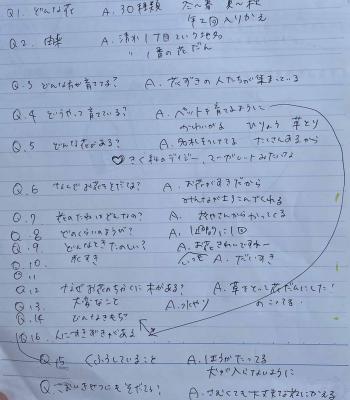 Q1. どんな花 A. 30種類 冬〜春 夏〜秋
年2回入りかえ
Q2. 由来 A. 清水1丁目という地名
〃 1番の花だん
Q.3 どんな方が育ててる? A. 花ずきの人たちが集まっている
Q.4 どうやって育ている? A. ペットを育てるように
かわいがる ひりょう 草とり
Q.5 どんな花がある? A. 名札をつけてる たくさんあるから
♡ きく科のデイジー、マーガレットみたいな
Q.6 なんでお花をそだてる? A. お花がすきだから
みんながよろこんでくれる
Q.7 花のたねはどんなの? A. 花やさんからかってくる
Q.8 どのくらいにかう? A. 1週間に1回
Q.9 どんなときたのしい? A. お花きれいですねー
Q.10. 花すき A. だいすき
Q11
Q12 なぜお花のちかくに木がある? A. 草をとって花だんにした!
Q13. 大変なこと A. 水やり のこってる
Q.14 どんなきもち
Q16. 人にすきずきがある
Q15 くふうしていること A. はしらがたってる
犬が入らないように
Q. さむいきせつにもそだてる? A. さむくても大丈夫な花にかえる